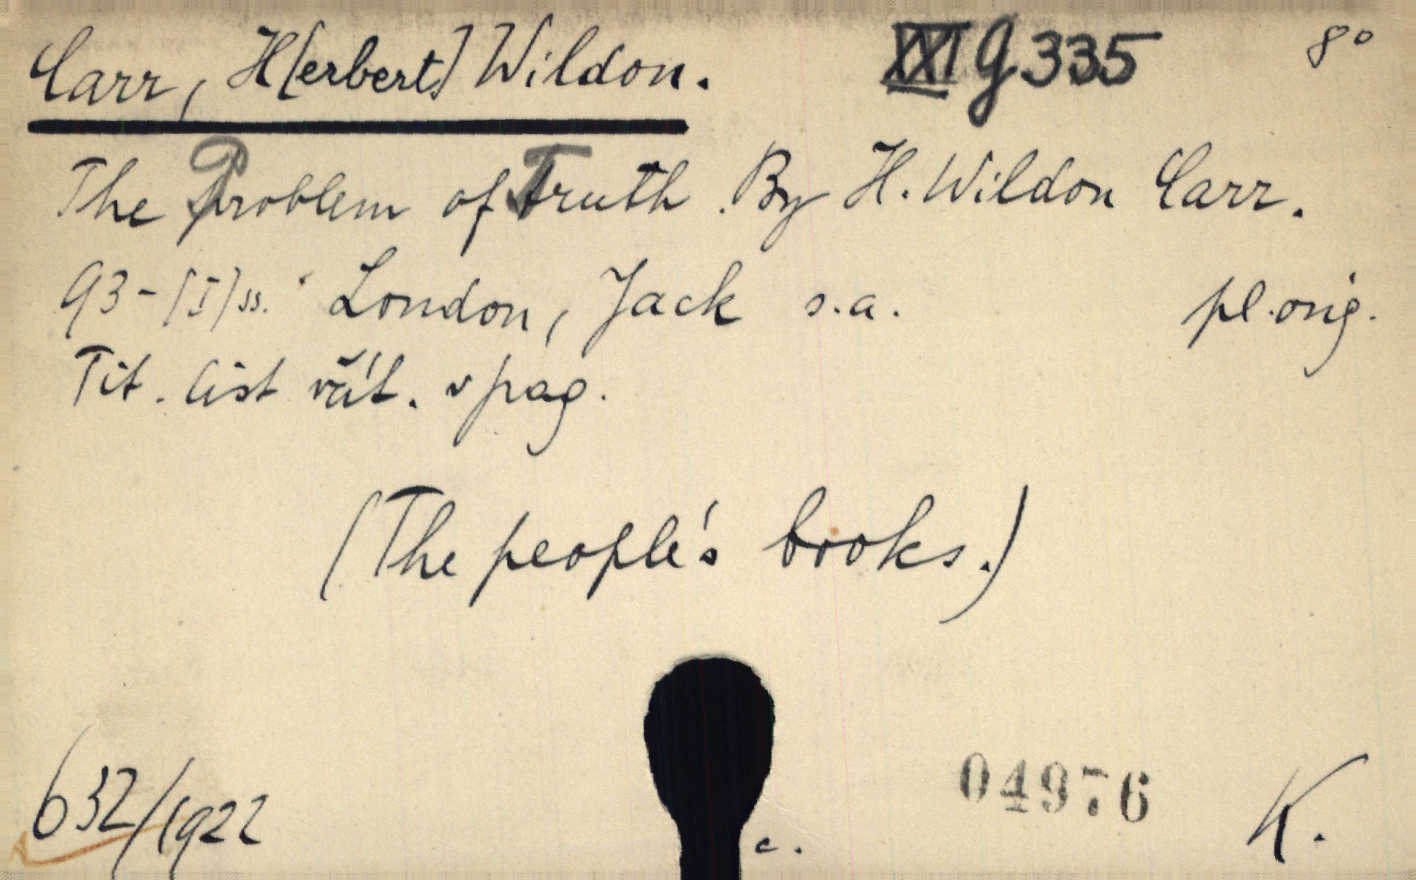 Carr, H[erbert] Wildon. XXI g 335 8°
The Problem of Truth. By H. Wildon Carr.
93-[I] ss. London, Jack s.a. pl. orig.
Tit. list váz. v pag.
(The people's books.)
632/1922 c. 04976 K.